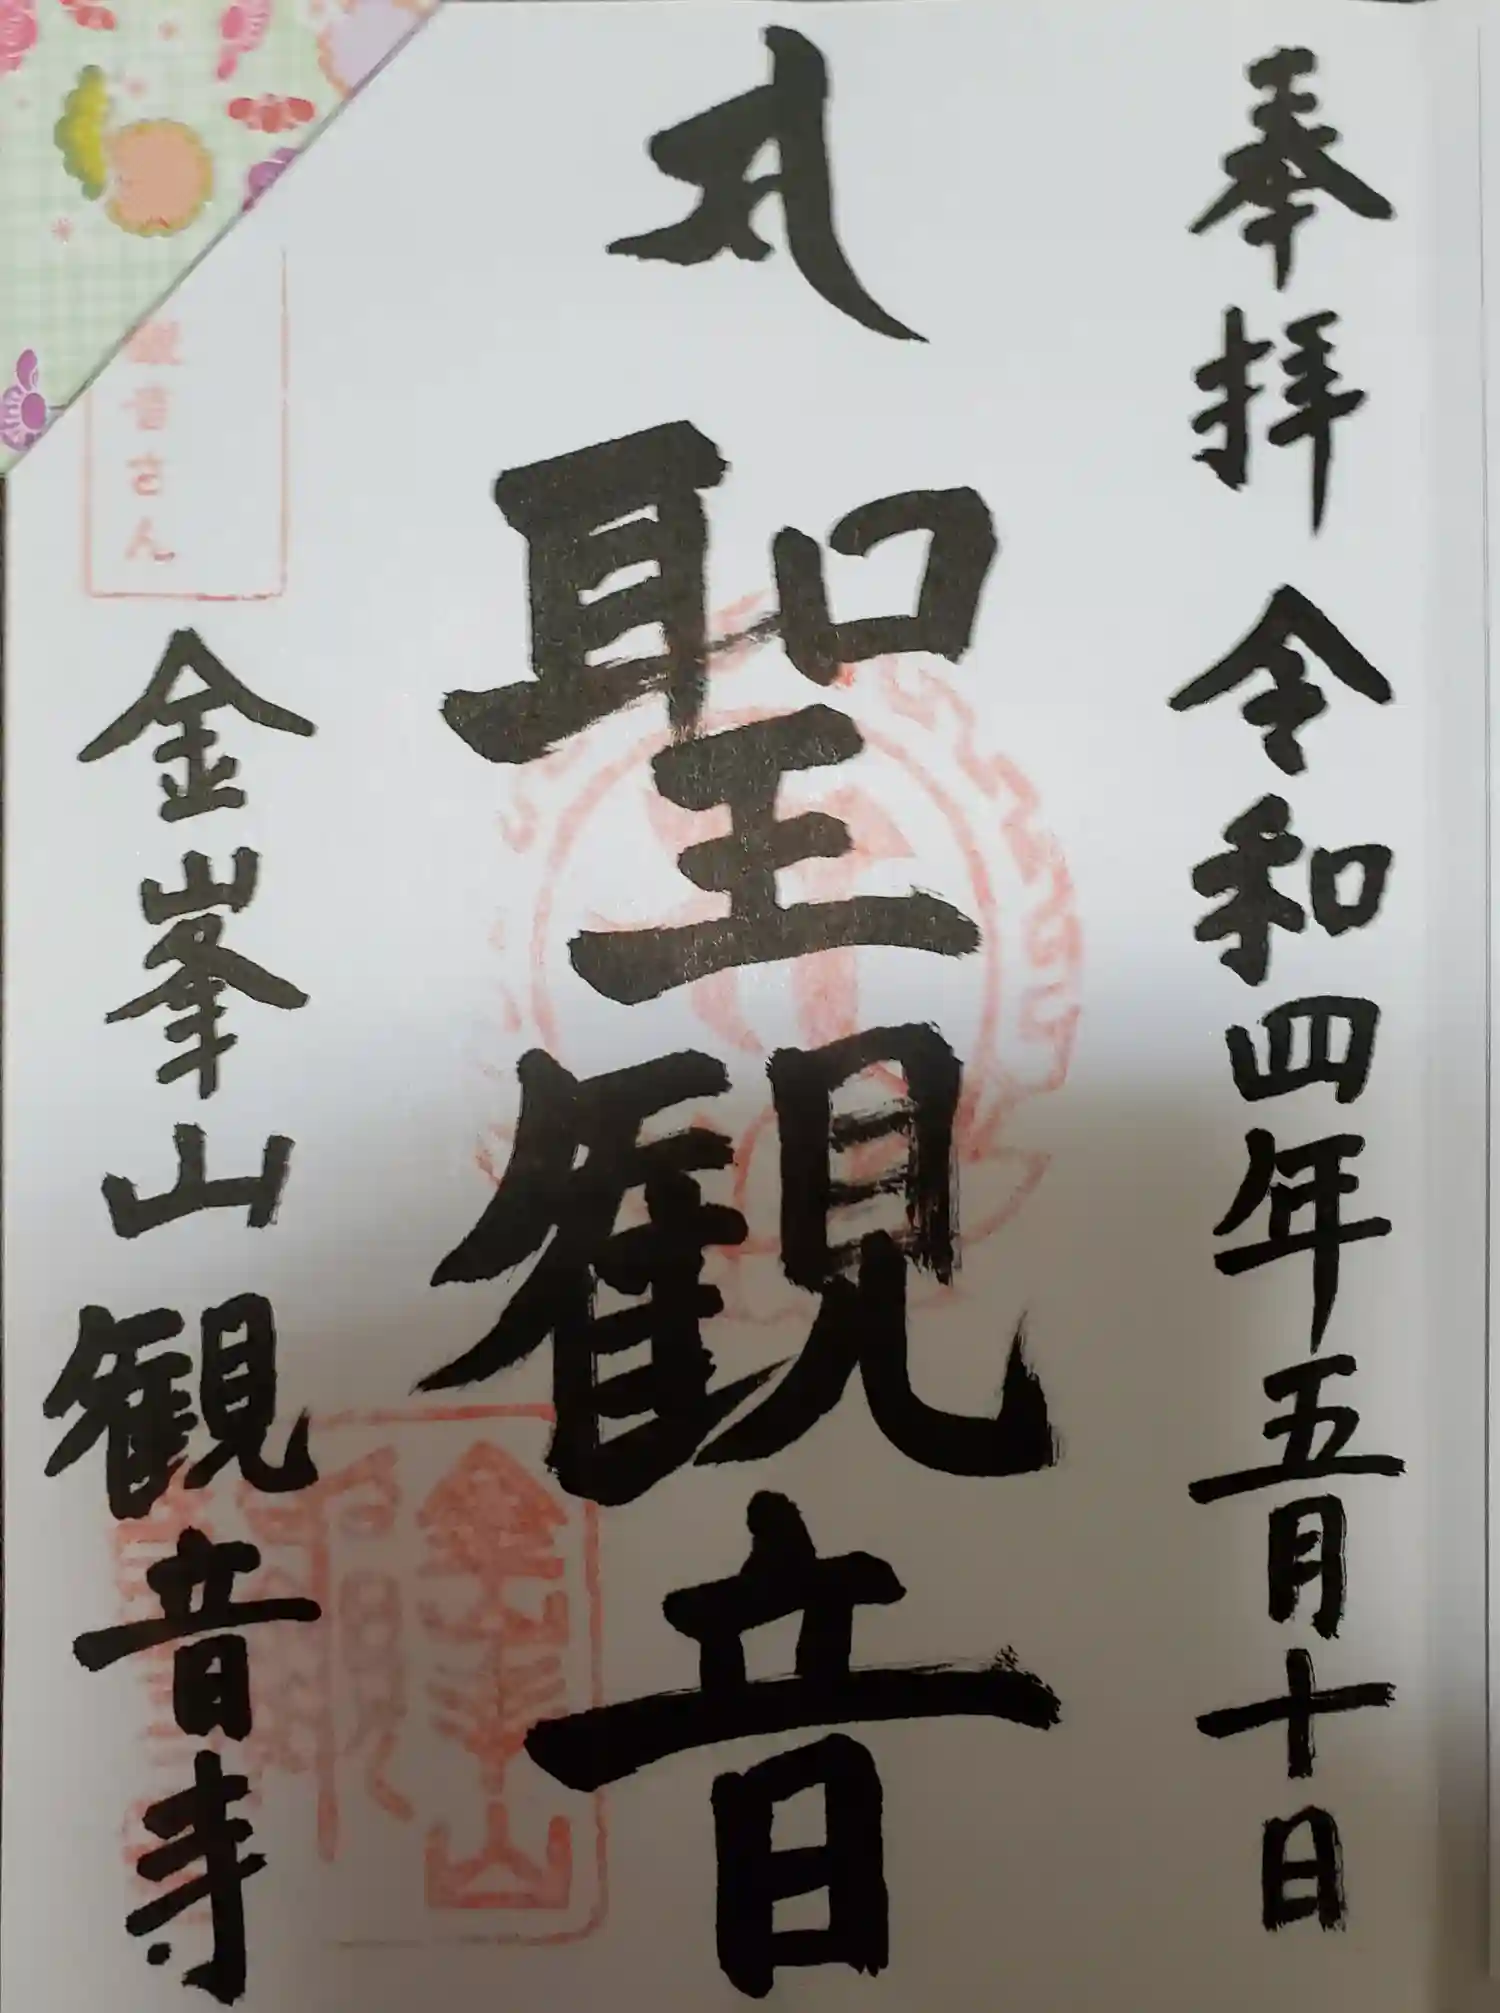 奉拝 令和四年五月十日
聖観音
金峯山観音寺
観音さん